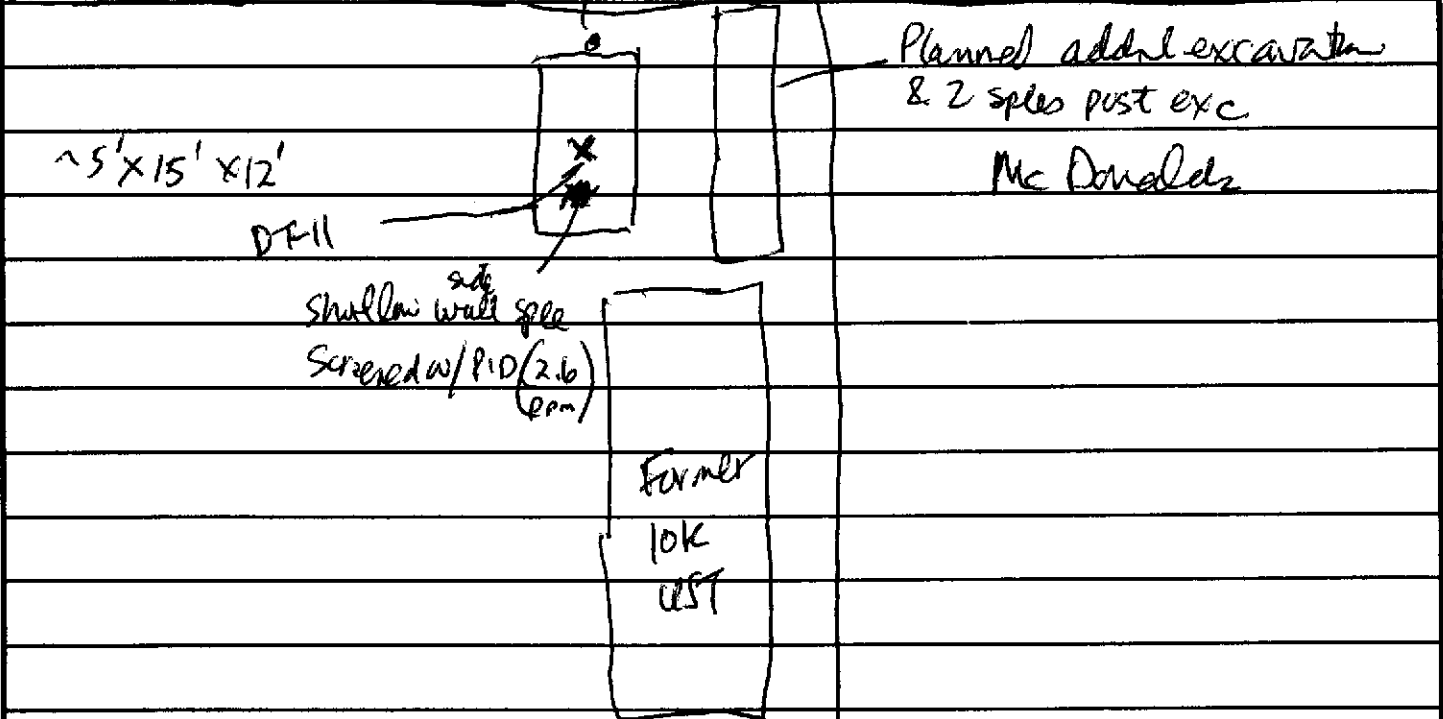 Planned addnl excavation
& 2 sples post exc
McDonalds
~5'x15'x12'
X
DT-11
side
Shallow wall sple
Screened w/ PID (2.6
ppm)
Former
10K
UST